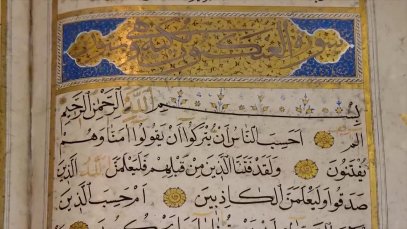 سورة العنكبوت
بسم الله الرحمن الرحيم
الم احسب الناس ان يتركوا ان يقولوا امنا وهم
يفتنون ولقد فتنا الذين من قبلهم فليعلمن الله الذين
صدقوا وليعلمن الكاذبين ام حسب الذين